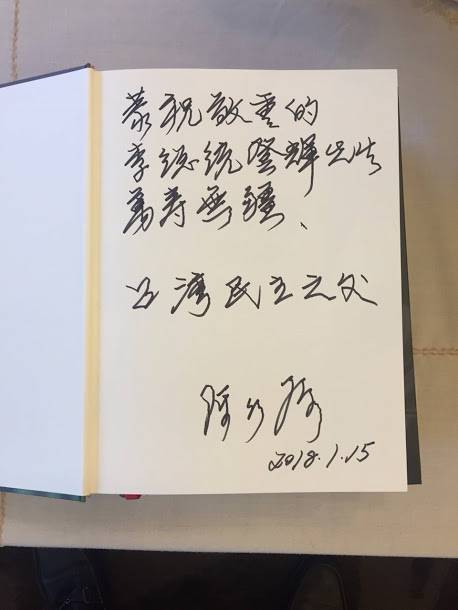 恭祝敬重的
李總統登輝先生
萬壽無疆、
台灣民主之父
2018.1.15